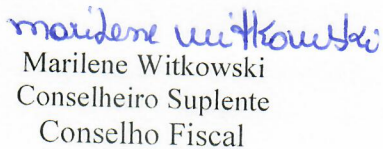 marilene witkowski
Marilene Witkowski
Conselheiro Suplente
Conselho Fiscal